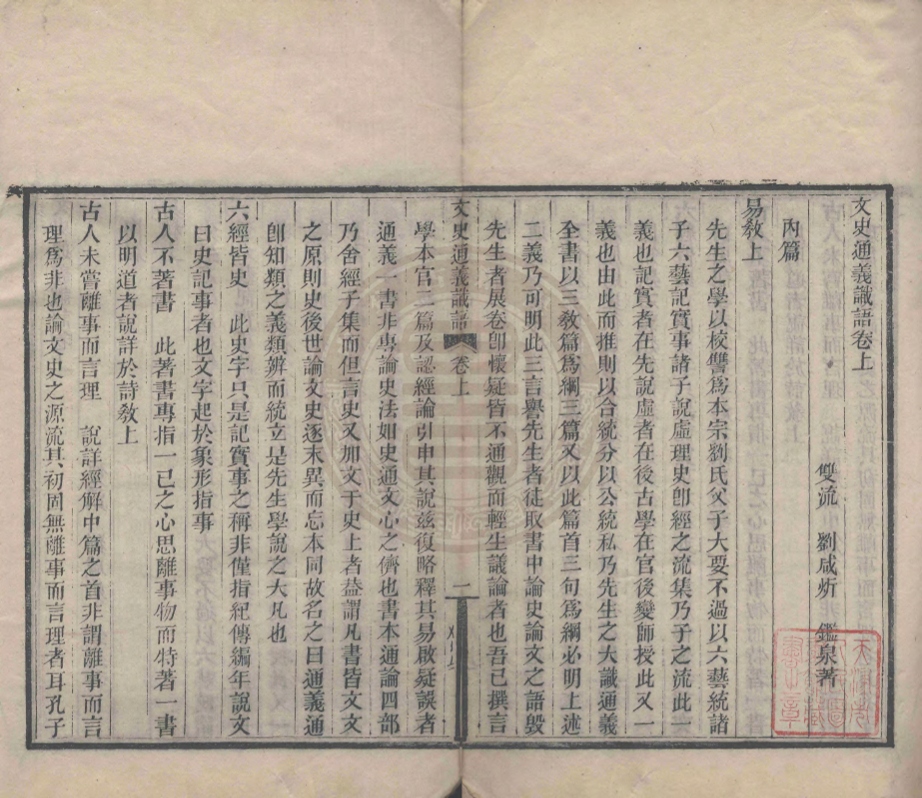 文史通義識語卷上
雙流 劉咸炘 鑑泉著
內篇
易敎上
先生之學以校讐爲本宗劉氏父子大要不過以六藝統諸
子六藝記實事諸子說虛理史卽經之流集乃子之流此一
義也記實者在先說虛者在後古學在官後變師授此又一
義也由此而推則以合統分以公統私乃先生之大識通義
全書以三敎篇爲綱三篇又以此篇首三句爲綱必明上述
二義乃可明此三言譽先生者徒取書中論史論文之語毀
先生者展卷卽懷疑皆不通觀而輕生議論者也吾已撰言
文史通義識語 卷上 一
學本官二篇及認經論引申其說兹復略釋其易啟疑誤者
通義一書非專論史法如史通文心之儕也書本通論四部
乃舍經子集而但言史又加文于史上者葢謂凡書皆文文
之原則史後世論文史逐末異而忘本同故名之曰通義通
卽知類之義類辨而統立是先生學說之大凡也
六經皆史 此史字只是記實事之稱非僅指紀傳編年說文
曰史記事者也文字起於象形指事
古人不著書 此著書專指一己之心思離事物而特著一書
以明道者說詳於詩敎上
古人未嘗離事而言理 說詳經解中篇之首非謂離事而言
理爲非也論文史之源流其初固無離事而言理者耳孔子